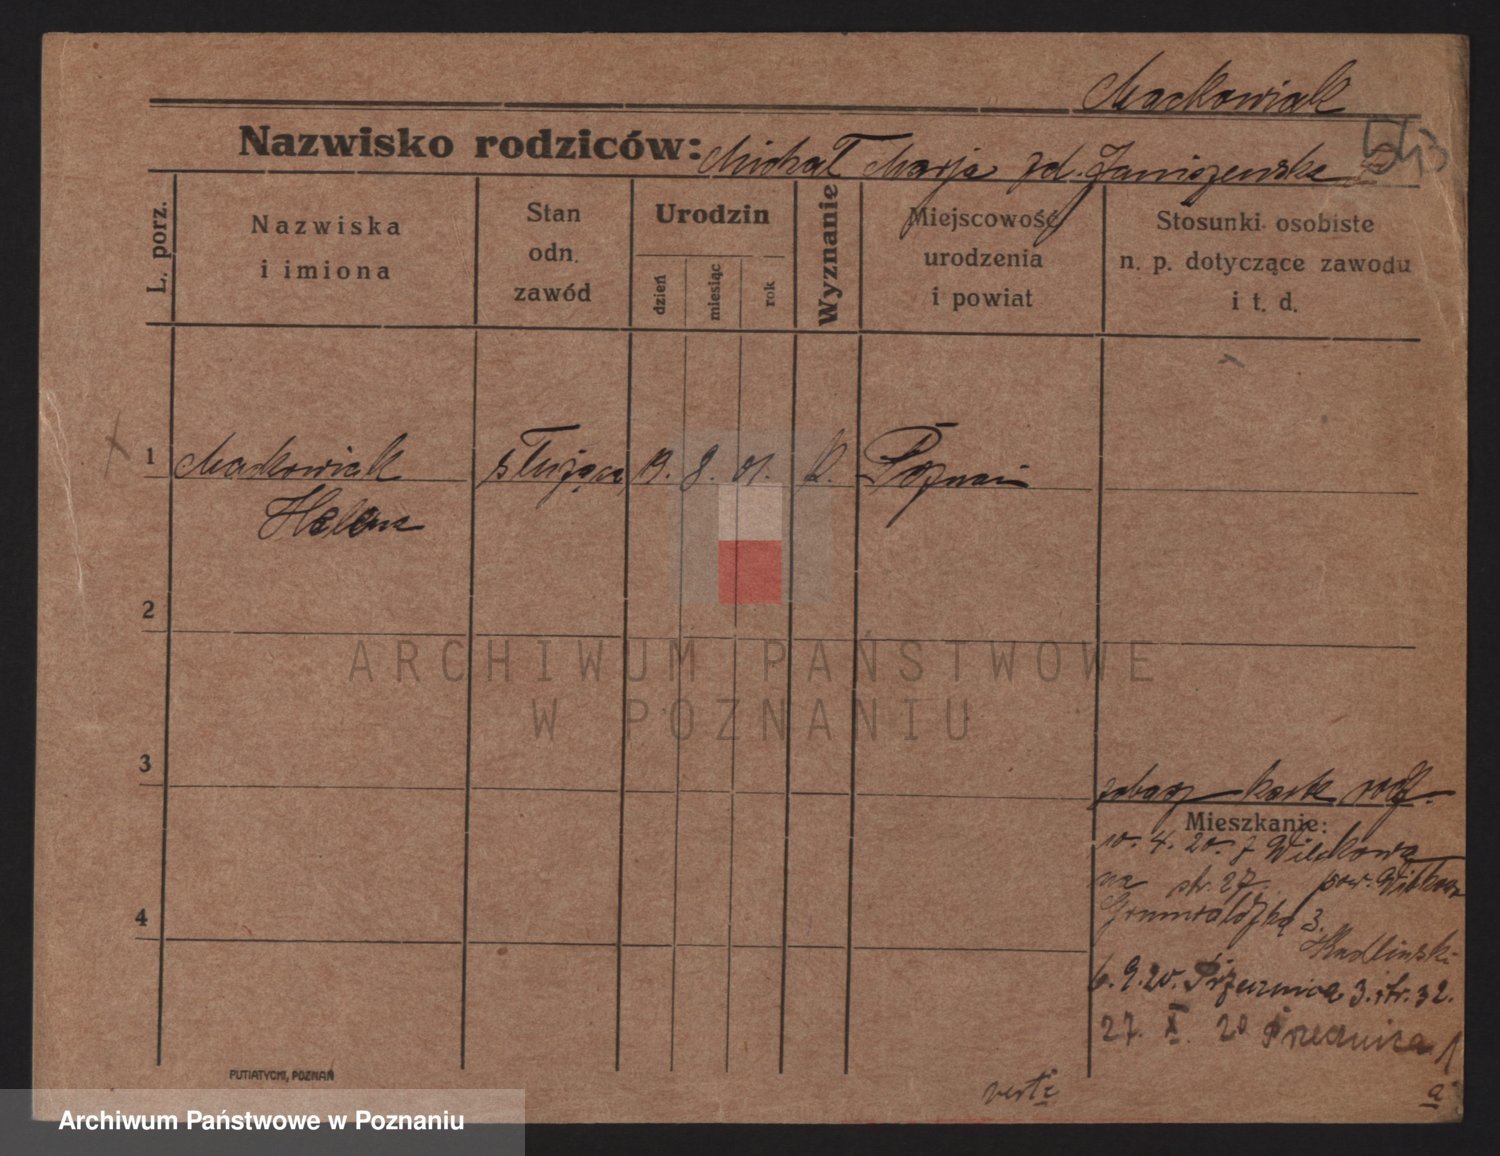 Maćkowiak
Nazwisko rodziców: Michał Marja zd. Janiszewska
L. porz.
Nazwiska
i imiona
Stan
odn.
zawód
Urodzin
dzień
miesiąc
rok
Wyznanie
Miejscowość
urodzenia
i powiat
Stosunki osobiste
n. p. dotyczące zawodu
i t. d.
1 Maćkowiak służąca 13. 8. 01. K. Poznań
Helena
2
3
zobacz kart rodz.
Mieszkanie:
10. 4. 20. z Witkowa
na str. 27. pow. Witkowo
Grunwaldzką 3.
Kadlinski
6. 9. 20. 3. str. 32.
4
27. X. 20
verte
a
PUTIATYCKI, POZNAŃ
ARCHIWUM PAŃSTWOWE
W POZNANIU
Archiwum Państwowe w Poznaniu